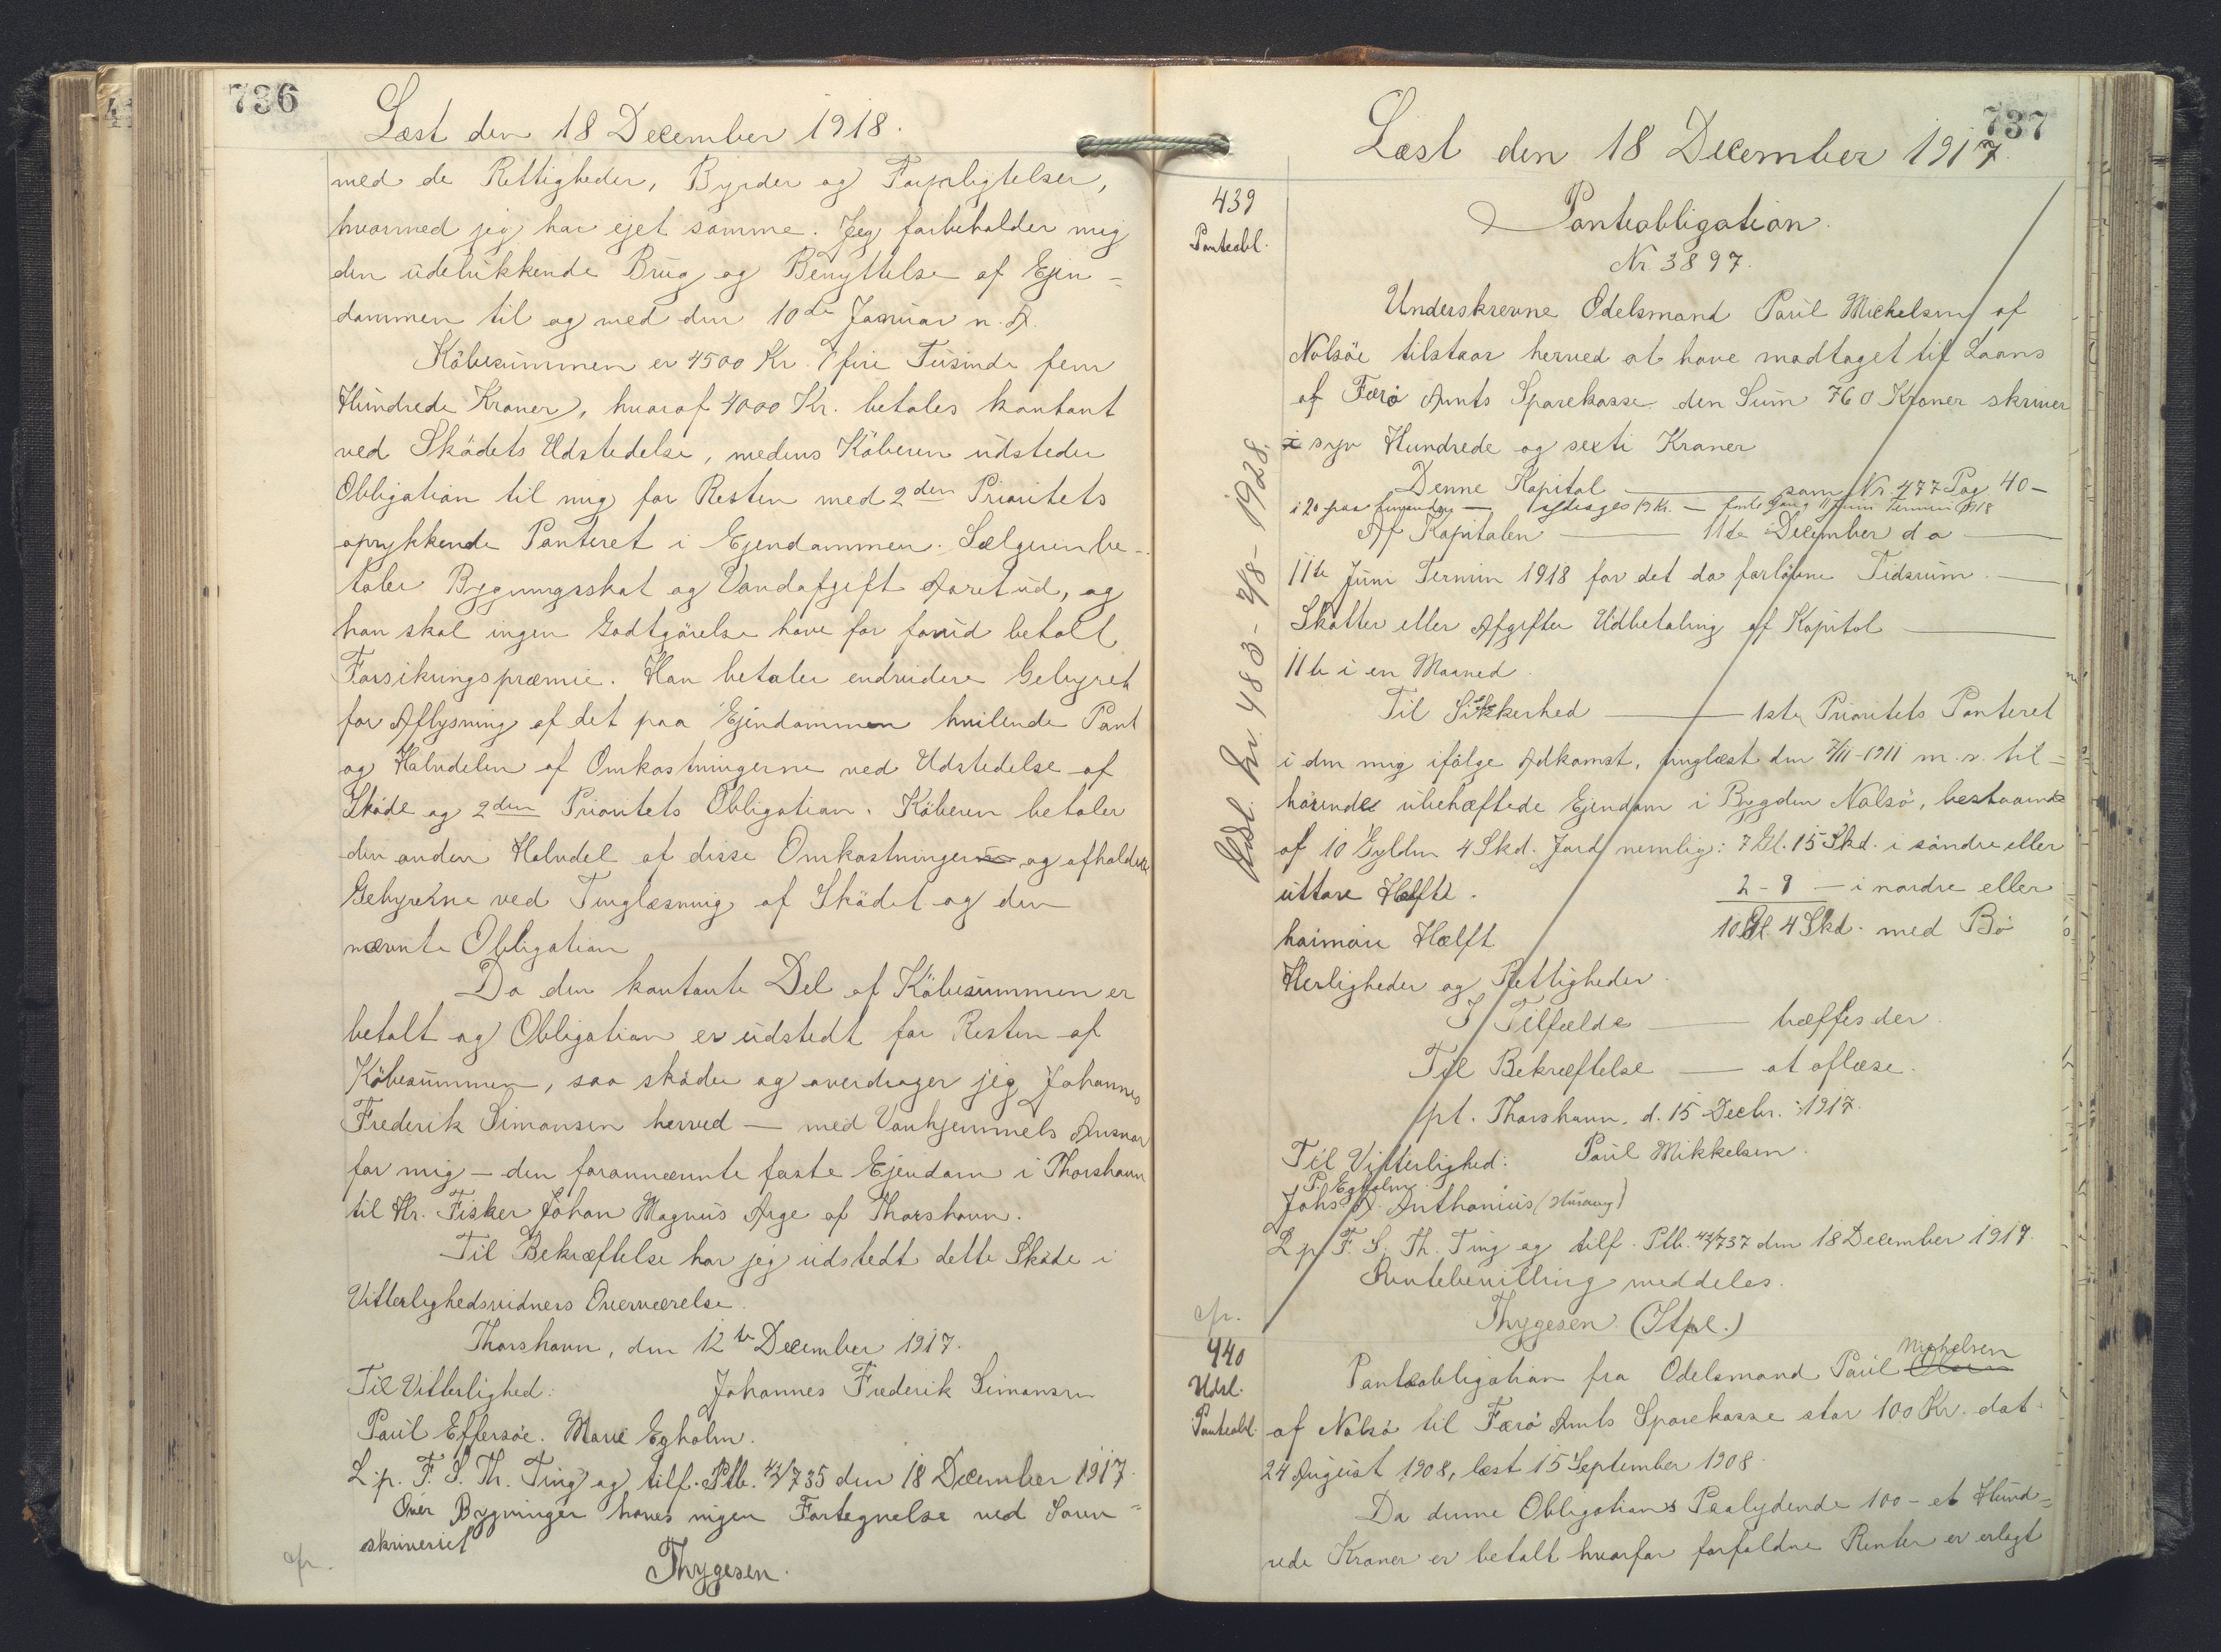 736
Læst den 18 December 1918.
med de Rettigheder, Byrder og Forpligtelser,
hvormed jeg har ejet samme. Jeg forbeholder mig
den udelukkende Brug og Benyttelse af Ejen=
dommen til og med den 10de Januar n. A.
Købesummen er 4500 Kr. (fire Tusinde fem
Hundrede Kroner), hvoraf 4000 Kr. betales kontant
ved Skødets Udstedelse, medens Køberen udsteder
Obligation til mig for Resten med 2den Prioritets
oprykkende Panteret i Ejendommen. Sælgeren be-
taler Bygningsskat og Vandafgift Aaret ud, og
han skal ingen Godtgørelse have for forud betalt
Forsikringspræmie. Han betaler endvidere Gebyret
for Aflysning af det paa Ejendommen hvilende Pant
og Halvdelen af Omkostningerne ved Udstedelse af
Skøde og 2den Prioritets Obligation. Køberen betaler
den anden Halvdel af disse Omkostninger og afholder
Gebyrerne ved Tinglæsning af Skødet og den
nævnte Obligation
Da den kontante Del af Købesummen er
betalt og Obligation er udstedt for Resten af
Købesummen, saa skøder og overdrager jeg Johannes
Frederik Simonsen herved — med Vanhjemmels Ansvar
for mig — den forannævnte faste Ejendom i Thorshavn
til Hr. Fisker Johan Magnus Arge af Thorshavn.
Til Bekræftelse har jeg udstedt dette Skøde i
Vitterlighedsvidners Overværelse.
Thorshavn, den 12te December 1917.
Til Vitterlighed: Johannes Frederik Simonsen
Paul Effersøe. Marie Egholm.
L. p. F. S. Th. Ting og tilf. Ptb. 41/735 den 18 December 1917.
Over Bygninger haves ingen Fortegnelse ved Soren=
skriveriet
Thygesen.
cfr.
737
Læst den 18 December 1917.
439
Panteobl.
Panteobligation.
Nr 3897.
Underskrevne Odelsmand Paul Mickelsen af
Nolsøe tilstaar herved at have modtaget til Laans
af Færø Amts Sparekasse den Sum 760 Kroner skriver
syv Hundrede og sexti Kroner
Denne Kapital ——— som Nr. 477 Pag 40 —
Af Kapitalen ——— 11te December d a ———
11te Juni Termin 1918 for det da forløbne Tidsrum. ———
Skatter eller Afgifter Udbetaling af Kapital ———
11te i en Maaned
Til Sikkerhed ——— 1ste Prioritets Panteret
i den mig ifølge Adkomst, tinglæst den 7/11-1911 m. v. til=
hørende ubehæftede Ejendom i Bygden Nolsø, bestaaende
af 10 Gylden 4 Skd. Jord nemlig: 7 Gl. 15 Skd. i søndre eller
uttare Hælfte. 2 - 9 — i nordre eller
haimare Hælft. 10 Gl. 4 Skd. med Bø
Herligheder og Rettigheder.
I Tilfælde ——— træffes der.
Til Bekræftelse ——— at aflæse.
pt. Thorshavn, d. 15 Decbr. 1917.
Til Vitterlighed: Paul Mikkelsen.
P. Egholm.
Johs A. Anthonius (Husavig)
L. p. F. S. Th. Ting og tilf. Ptb. 41/737 den 18 December 1917.
Rentebevilling meddeles.
Thygesen (Stpl.)
cfr.
Udsl. Nr. 483 - 7/8 - 1928.
440
Udsl.
Panteobl.
Panteobligation fra Odelsmand Paul Michelsen
af Nolsø til Færø Amts Sparekasse stor 100 Kr. dat.
24 August 1908, læst 15 September 1908.
Da denne Obligations Paalydende 100 - et Hund=
rede Kroner er betalt hvorfor forfaldne Renter er erlagt